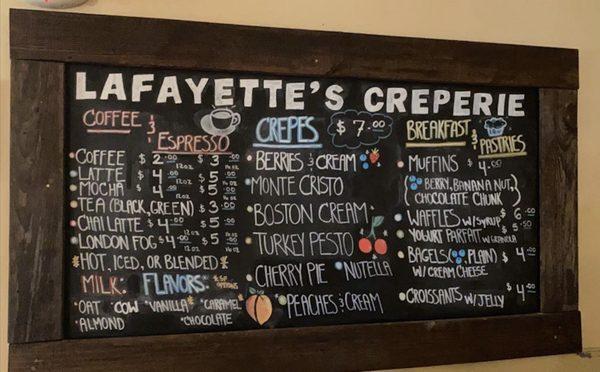 LAFAYETTE'S CREPERIE
COFFEE & ESPRESSO
COFFEE $2.00 12oz $3.00 16oz
LATTE $4.00 12oz $5.00 16oz
MOCHA $4.00 12oz $5.00 16oz
TEA (BLACK, GREEN) $3.00
CHAI LATTE $4.00 12oz $5.00 16oz
LONDON FOG $4.00 12oz $5.00 16oz
HOT, ICED, OR BLENDED
MILK: FLAVORS:
OAT COW VANILLA CARAMEL
ALMOND CHOCOLATE
CREPES $7.00
BERRIES & CREAM
MONTE CRISTO
BOSTON CREAM
TURKEY PESTO
CHERRY PIE NUTELLA
PEACHES & CREAM
BREAKFAST & PASTRIES
MUFFINS $4.00
(BERRY, BANANA NUT,
CHOCOLATE CHUNK)
WAFFLES W/SYRUP $6.00
YOGURT PARFAIT W/GRANOLA $5.00
BAGELS (PLAIN) $4.00
W/CREAM CHEESE
CROISSANTS W/JELLY $4.00